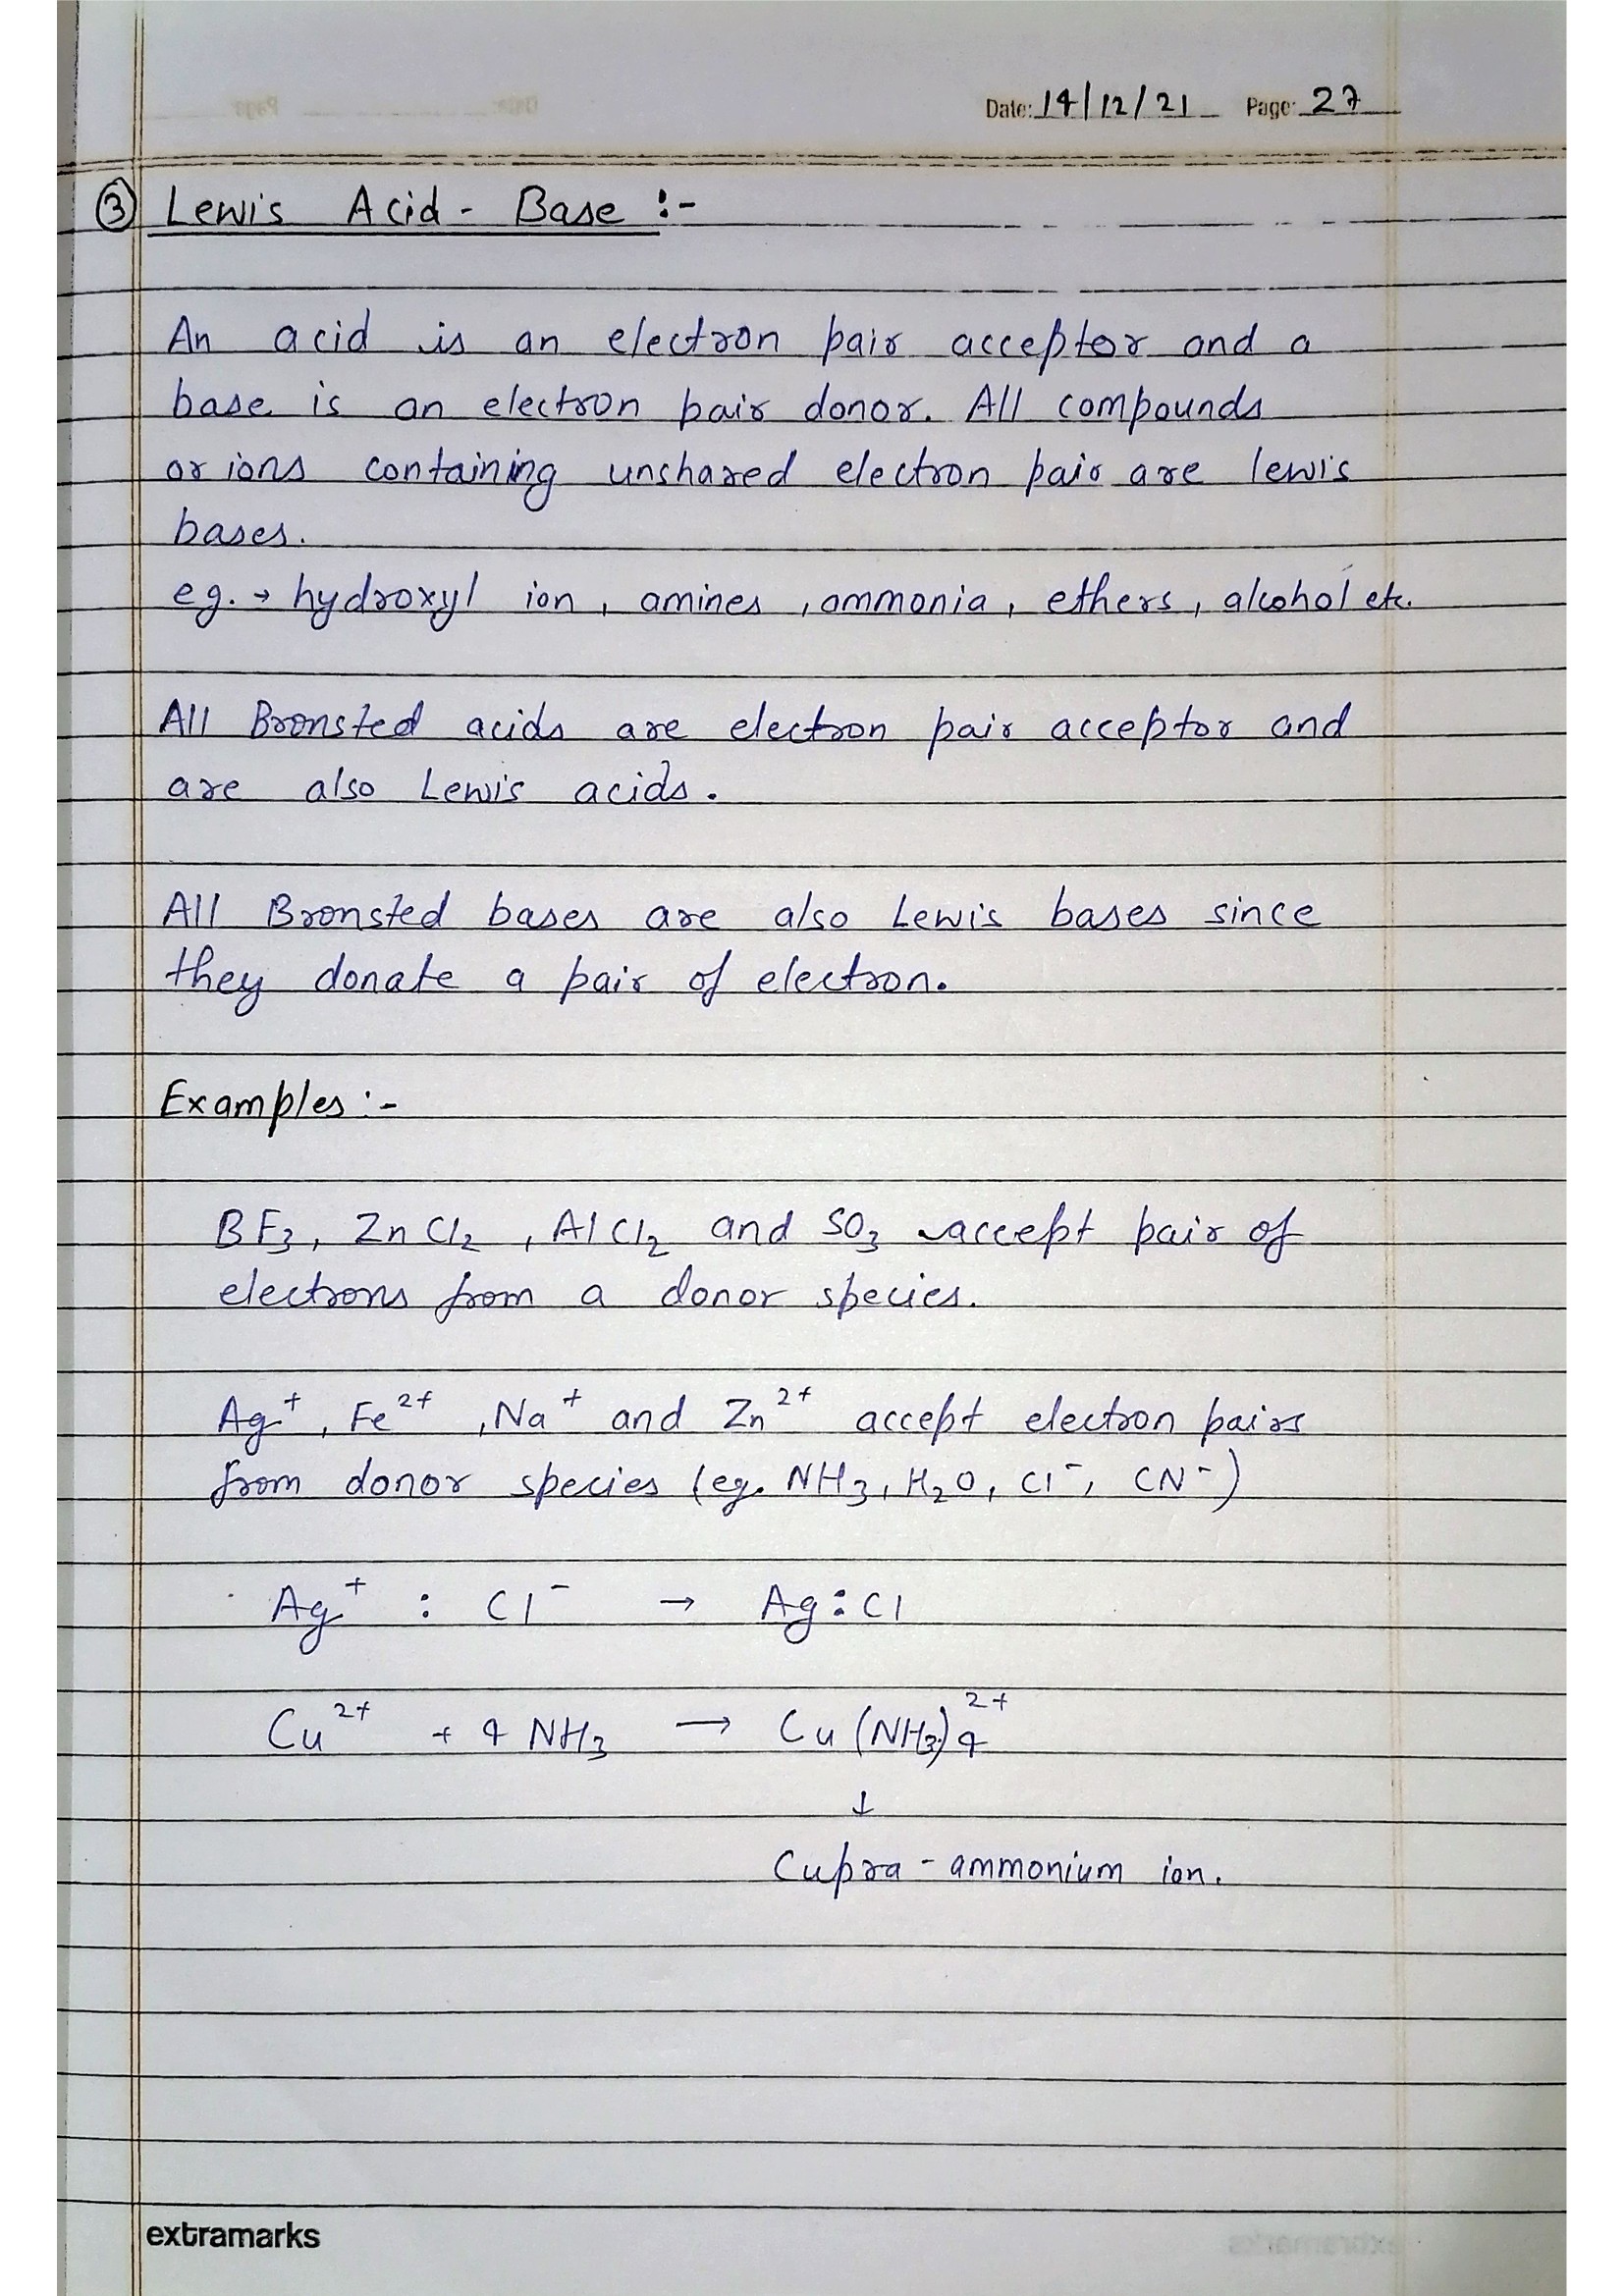 Date: 14/12/21 Page: 27
③ Lewis Acid - Base :-
An acid is an electron pair acceptor and a
base is an electron pair donor. All compounds
or ions containing unshared electron pair are lewis
bases.
eg. → hydroxyl ion, amines, ammonia, ethers, alcohol etc.
All Bronsted acids are electron pair acceptor and
are also Lewis acids.
All Bronsted bases are also Lewis bases since
they donate a pair of electron.
Examples :-
BF₃, ZnCl₂, AlCl₂ and SO₃ accept pair of
electrons from a donor species.
Ag⁺, Fe²⁺, Na⁺ and Zn²⁺ accept electron pairs
from donor species (eg. NH₃, H₂O, Cl⁻, CN⁻)
Ag⁺ : Cl⁻ → Ag:Cl
Cu²⁺ + 4 NH₃ → Cu(NH₃)₄²⁺
↓
Cupra - ammonium ion.
extramarks